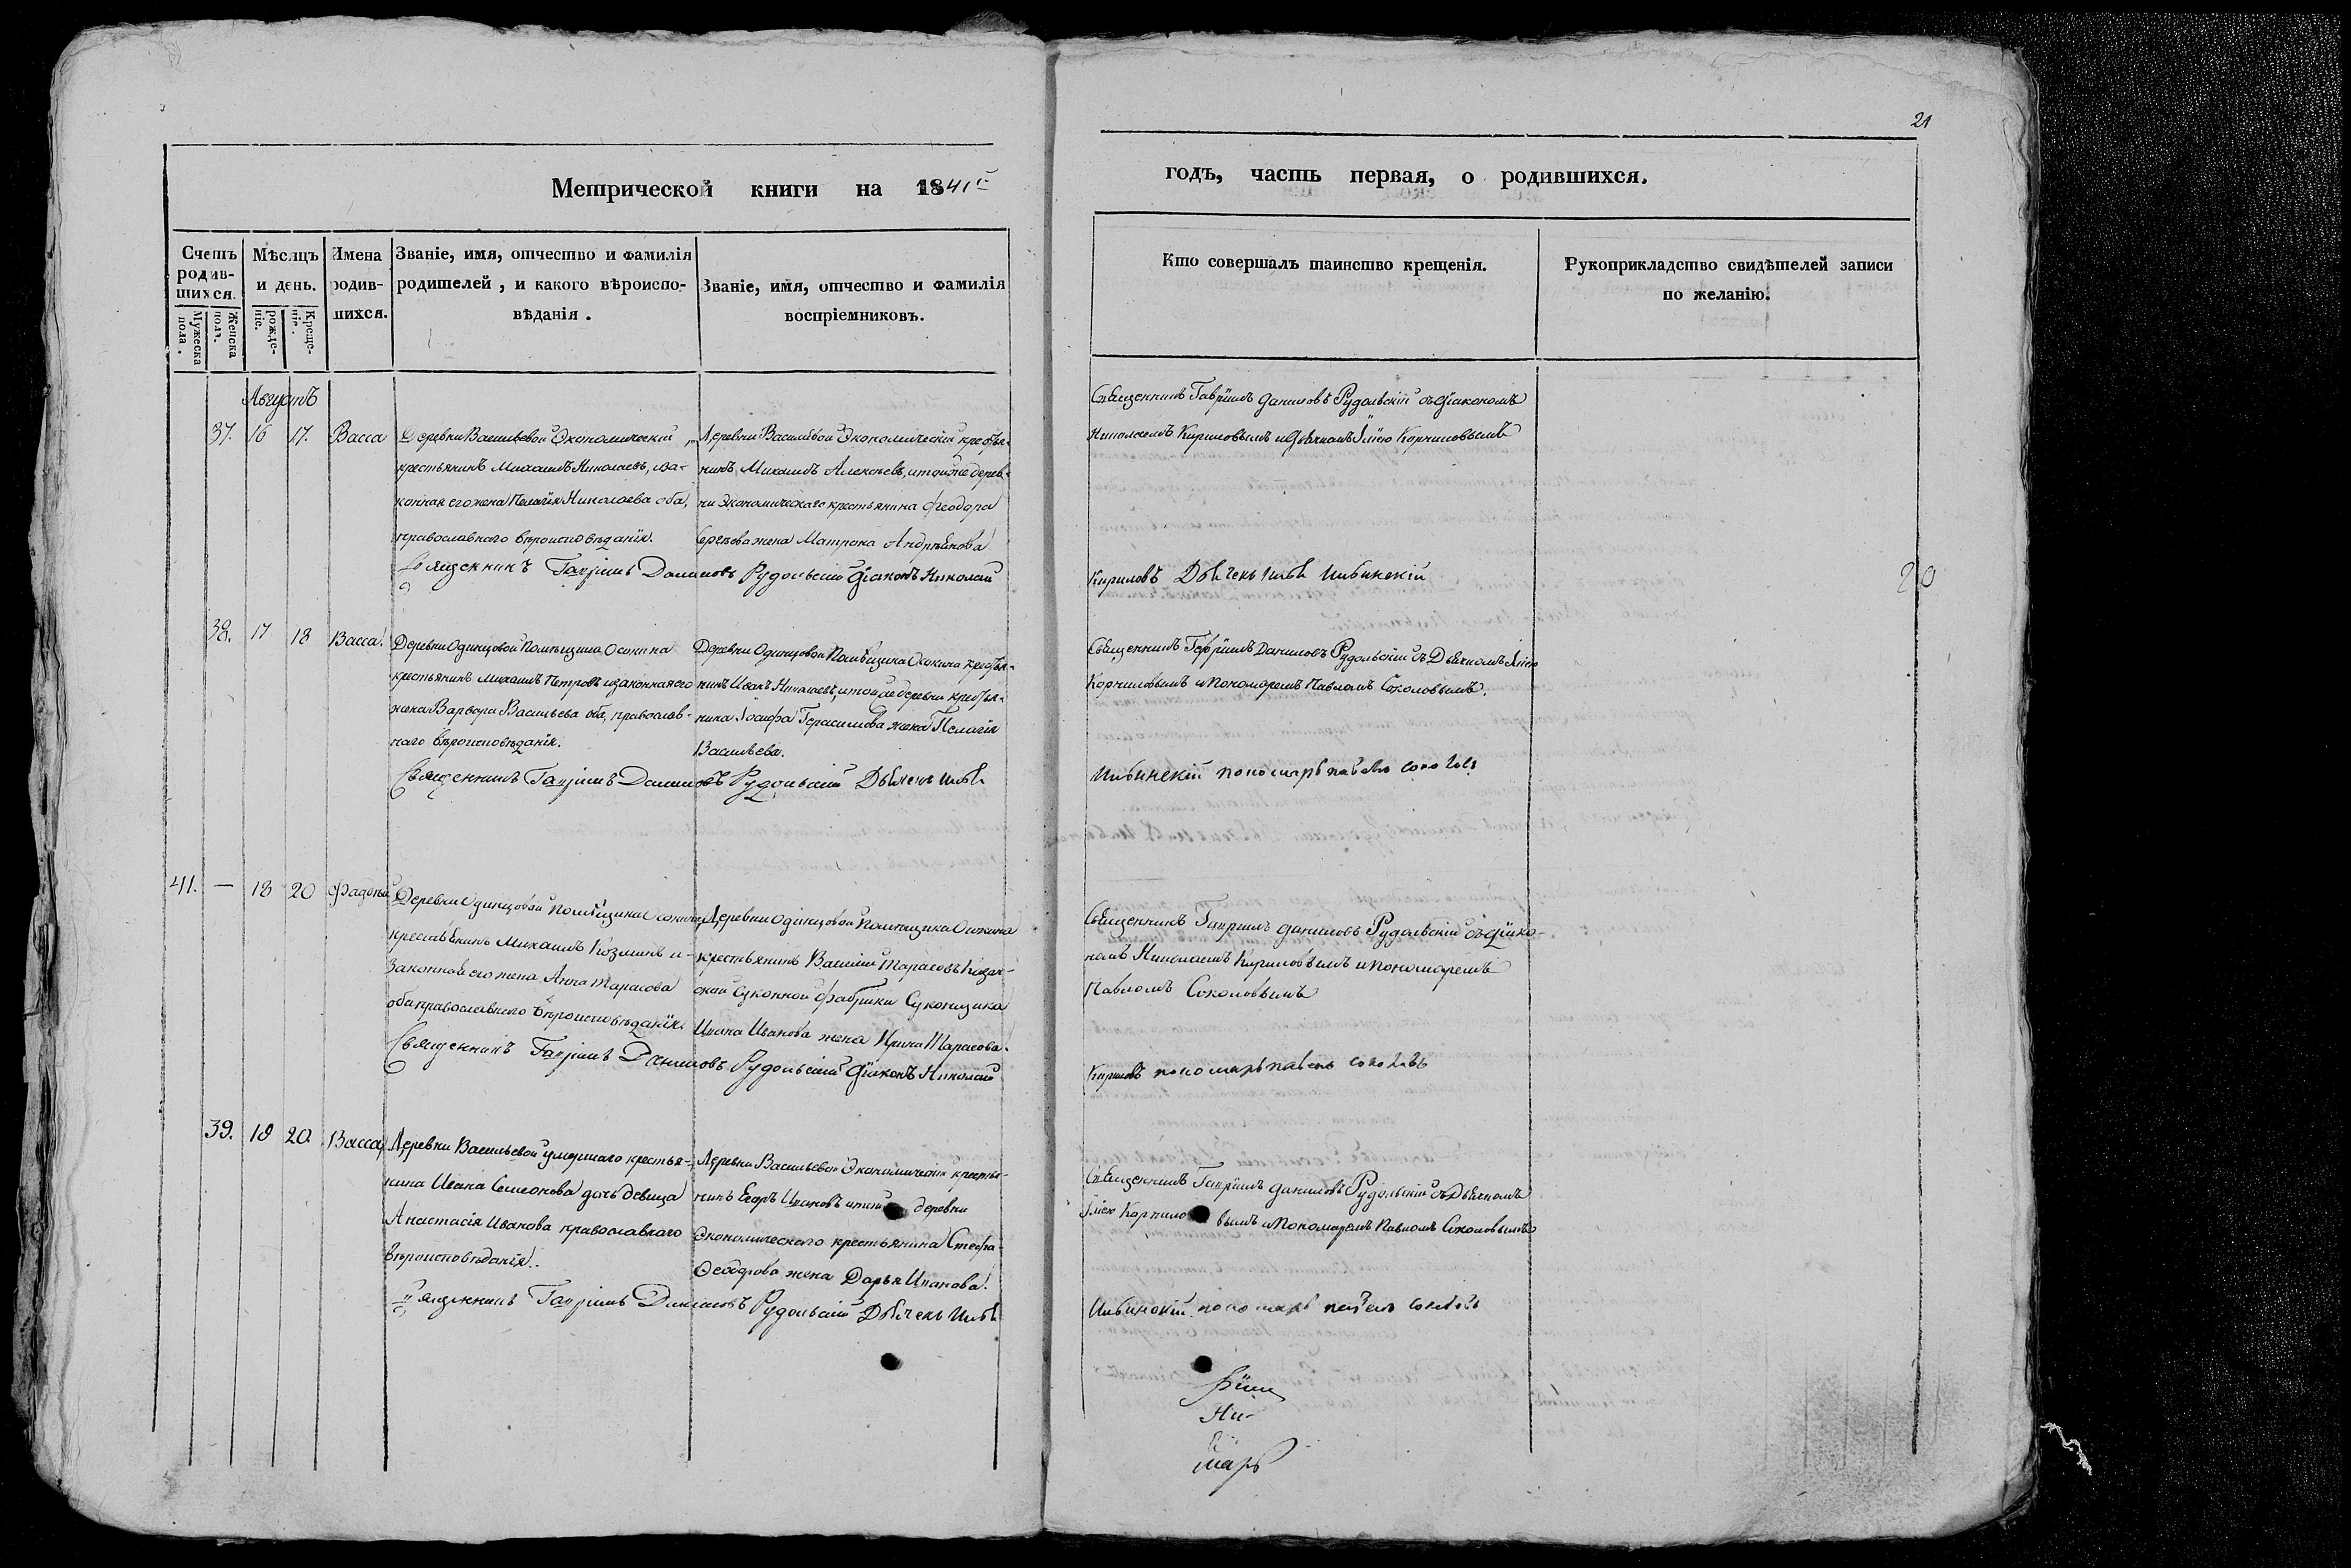 21
Метрической книги на 1841й
годъ, часть первая, о родившихся.
Счетъ родившихся.
Мужеска пола.
Женска пола.
Мѣсяцъ и день.
рожденіе.
Крещеніе.
Имена родившихся.
Званіе, имя, отчество и фамилія
родителей, и какого вѣроиспо-
вѣданія.
Званіе, имя, отчество и фамилія
воспріемниковъ.
Кто совершалъ таинство крещенія.
Рукоприкладство свидѣтелей записи
по желанію.
Августъ
37. 16 17. Васса
Деревни Васильевой Экономический
крестьянинъ Михаилъ Николаевъ, и за-
конная его жена Пелагія Николаева оба,
православнаго вѣроисповѣданія.
Деревни Васильевой Экономический крестья-
нинъ, Михаилъ Алексѣевъ, и той же дерев-
ни экономическаго крестьянина Феодора
Сергѣева жена Матрона Андрѣянова
Священникъ Гавріилъ Даниловъ Рудольскій съ діакономъ
Николаемъ Кириловымъ и Дьячкомъ Іліею Корниловымъ
Священникъ Гавріилъ Даниловъ Рудольскій Діаконъ Николай
Кириловъ Дьячекъ Илья Ильинскій
20
38. 17 18 Васса.
Деревни Одинцовой Помѣщика Осокина
крестьянинъ Михаилъ Петровъ и законная его
жена Варвара Васильева оба, православ-
наго вѣроисповѣданія.
Деревни Одинцовой Помѣщика Осокина крестья-
нинъ Иванъ Николаевъ, и той же деревни крестья-
нина Іосифа Герасимова жена Пелагія
Васильева.
Священникъ Гавріилъ Даниловъ Рудольскій съ Дьячкомъ Іліею
Корниловымъ и Пономаремъ Павломъ Соколовымъ.
Священникъ Гавріилъ Даниловъ Рудольскій Дьячекъ Илья
Ильинскій пономарь павелъ соколовъ
41. — 18 20 Фадѣй
Деревни Одинцовой Помѣщика Осокина
крестьянинъ Михаилъ Козминъ и
законная его жена Анна Тарасова
оба православнаго вѣроисповѣданія.
Деревни Одинцовой Помѣщика Осокина
крестьянинъ Василій Тарасовъ Казан-
ской Суконной фабрики Суконщика
Ивана Иванова жена Ирина Тарасова.
Священникъ Гавріилъ Даниловъ Рудольскій съ Діако-
номъ Николаемъ Кириловымъ и Пономаремъ
Павломъ Соколовымъ
Священникъ Гавріилъ Даниловъ Рудольскій Діаконъ Николай
Кириловъ пономарь павелъ соколовъ
39. 18 20. Васса
Деревни Васильевой умершаго крестья-
нина Ивана Семенова дочь девица
Анастасія Иванова православнаго
вѣроисповѣданія.
Деревни Васильевой Экономический крестья-
нинъ Егоръ Ивановъ и той деревни
Экономическаго крестьянина Стефа-
Феодрова жена Дарья Иванова.
Священникъ Гавріилъ Даниловъ Рудольскій съ Дьячкомъ
Іліею Корниловымъ и Пономаремъ Павломъ Соколовымъ
Священникъ Гавріилъ Даниловъ Рудольскій Дьячекъ Илья
Ильинскій пономарь павелъ соколовъ
Ни-
марь